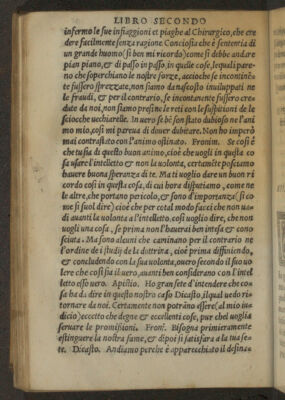 LIBRO SECONDO
infermo le sue infiaggioni et piaghe al Chirurgico, che cre
dere facilmente senza ragione. Conciosia che è sententia di
un grande huomo (si ben mi ricordo) come si debbe andare
pian piano, & di passo in passo, in quelle cose, lequali pare
no che soperchiano le nostre forze, accioche se incontinẽ
te fussero sprezzate, non siamo da nascosto inuiluppati ne
le fraudi, & per il contrario, se incontamente fussero cre
date da noi, non stiamo presi ne le reti con le suspitioni de le
sciocche uecchiarelle. In uero se bẽ son stato dubioso ne l'ani
mo mio, cosi mi pareua di douer dubitare. Non ho imperò
mai contrastato con l'animo ostinato. Fronim. Se cosi è
che tu sia di questo buon animo, cioè che uogli in questa co
sa usare l'intelletto & non la uolonta, certamẽte possiamo
hauere buona speranza di te. Ma ti uoglio dare un buon ri
cordo cosi in questa cosa, di cui hora disputiamo, come ne
le altre, che portano pericolo, & sono d'importanza (si co
me si suol dire) cioè che per cotal modo facci che non ua
di auanti la uolonta a l'intelletto, cosi uoglio dire, che non
uogli una cosa, se prima non l'hauerai ben intesa & cono
sciuta. Ma sono alcuni che caminano per il contrario ne
l'ordine de i studij de la dottrina, cioè prima diffiniendo,
& concludendo con la sua uolonta, ouero secondo il suo uo
lere che cosi sia il uero, auanti ben considerano con l'intel
letto esso uero. Apistio. Ho gran sete d'intendere che co-
sa ha da dire in questo nostro caso Dicasto, il qual uedo ri-
tornare da noi. Certamente non potrãno essere (al mio iu
dicio) eccetto che degne & eccellenti cose, pur chel uoglia
seruare le promissioni. Fron. Bisogna primieramente
estinguere la nostra fame, & dipoi si satisfara a la tua se-
te. Dicasto. Andiamo perche è apparecchiato il desina-